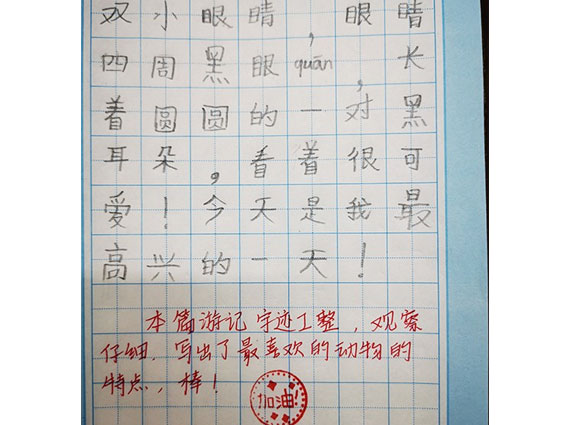 双小眼睛，眼睛
四周黑眼quān，长
着圆圆的一对黑
耳朵，看着很可
爱！今天是我最
高兴的一天！
本篇游记字迹工整，观察
仔细，写出了最喜欢的动物的
特点，棒！
加油!